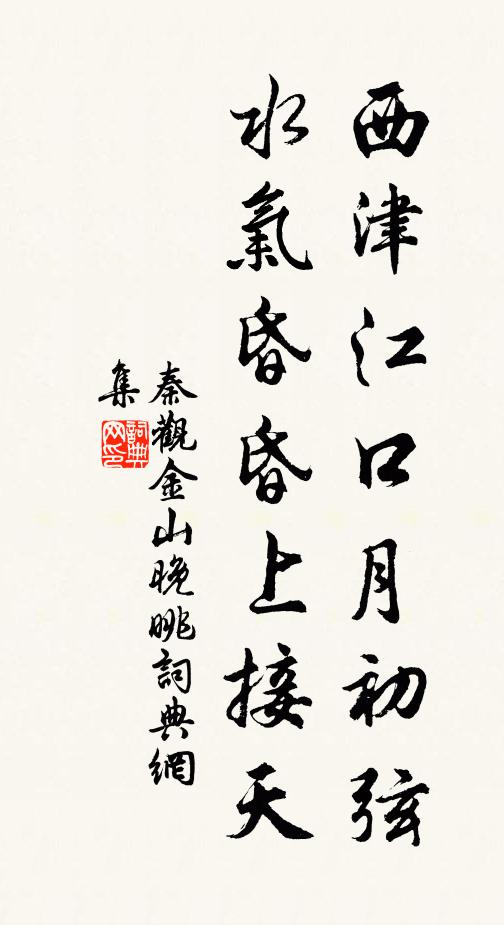 西津江口月初弦
水氣昏昏上接天
秦觀金山晚眺詞典網
集
詞典
网印